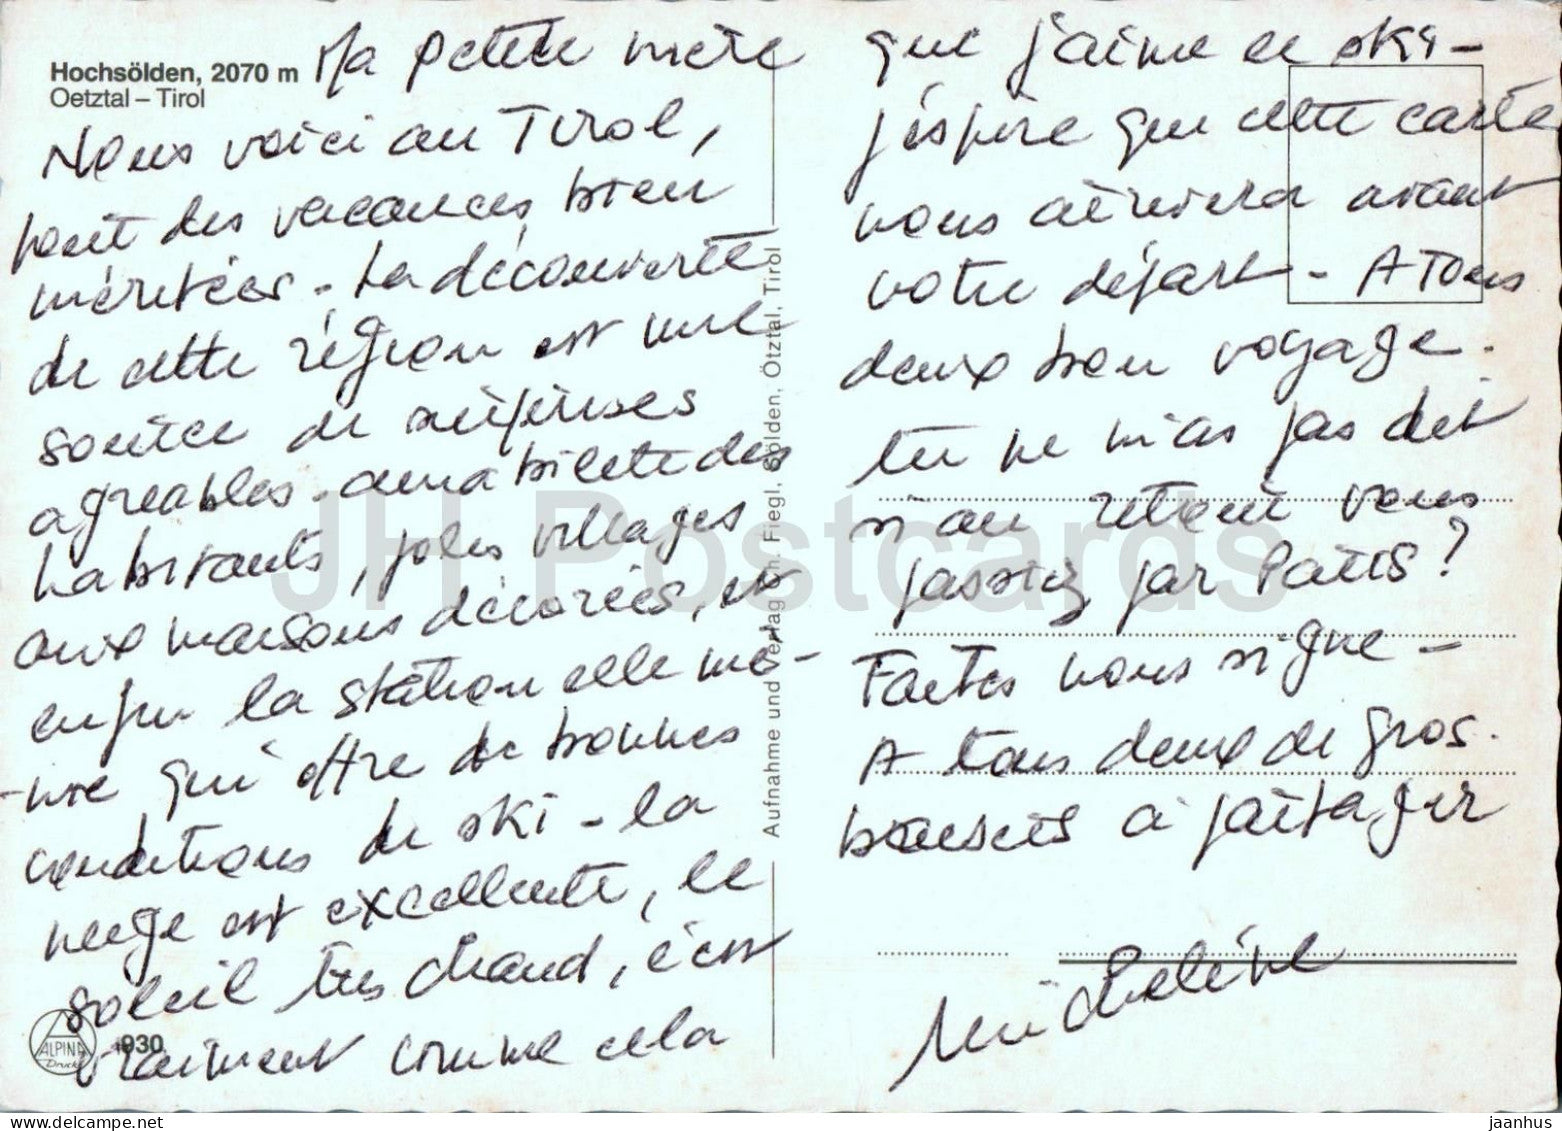 Hochsölden, 2070 m
Oetztal – Tirol
Ma petite mère
Nous voici au Tirol,
pour des vacances bien
méritées - La découverte
de cette région est une
source de surprises
agréables - amabilité des
habitants, jolis villages
aux maisons décorées, et
enfin la station elle mê-
-me qui offre de bonnes
conditions de ski - la
neige est excellente, le
soleil très chaud, c'est
vraiment comme cela
que j'aime le ski -
J'espère que cette carte
vous arrivera avant
votre départ - A tous
deux bon voyage.
tu ne m'as pas dit
si au retour vous
passiez par Paris ?
Faites nous signe -
A tous deux de gros
baisers à partager
Micheline
Aufnahme und Verlag Ch. Fiegl, Sölden, Ötztal, Tirol
ALPINA
Druck
930
JH Postcards
jaanhus